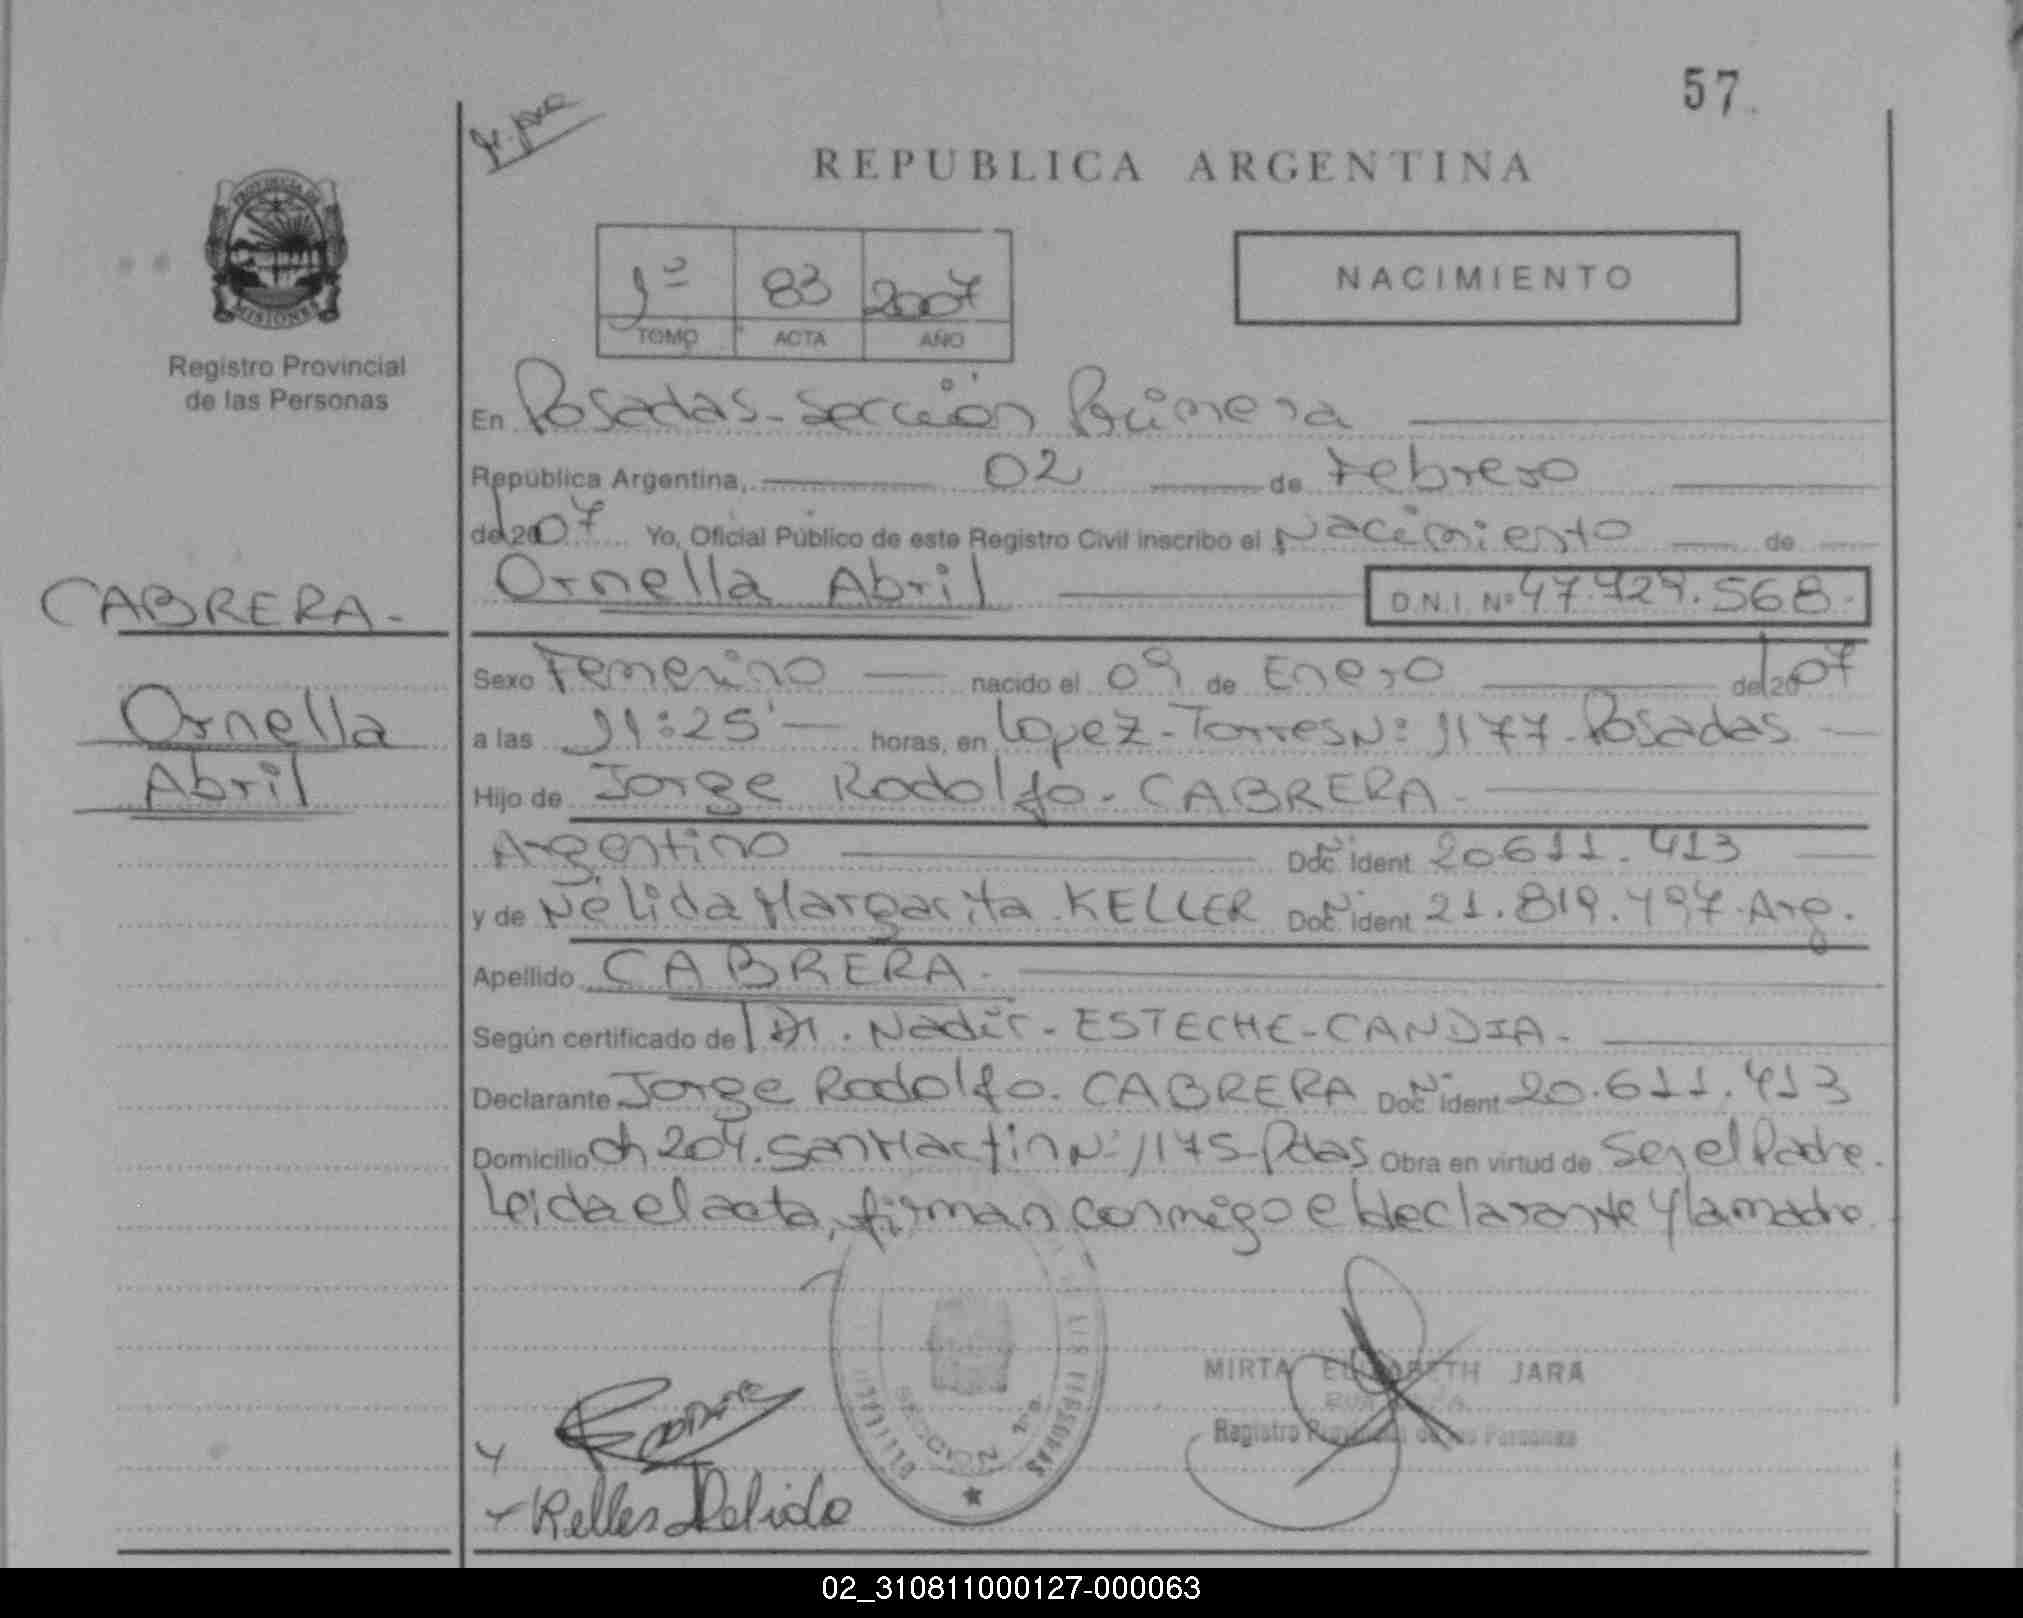 57
REPUBLICA ARGENTINA
PROVINCIA DE
MISIONES
Registro Provincial
de las Personas
1º 83 2007
TOMO ACTA AÑO
NACIMIENTO
En Posadas-Sección Primera
República Argentina, 02 de Febrero
del 2007 Yo, Oficial Público de este Registro Civil inscribo el Nacimiento de
Ornella Abril D.N.I. Nº 47.929.568.
CABRERA.-
Ornella
Abril
Sexo Femenino nacido el 09 de Enero del 2007
a las 11:25' horas, en Lopez-Torres Nº 1177-Posadas
Hijo de Jorge Rodolfo. CABRERA.
Argentino Doc. Nº Ident 20.611.413
y de Nélida Margarita KELLER Doc. Nº Ident 21.819.497.Arg.
Apellido CABRERA.
Según certificado del Dr. Nadir. ESTECHE-CANDIA.
Declarante Jorge Rodolfo. CABRERA Doc. Nº Ident 20.611.413
Domicilio ch 204. San Martin Nº 1175-Pdas Obra en virtud de Ser el Padre.
Leida el acta, firman conmigo el declarante y la madre.
MIRTA ELIZABETH JARA
Registro Provincial de las Personas
SECCION 1ra.
Keller Nelida
02_310811000127-000063